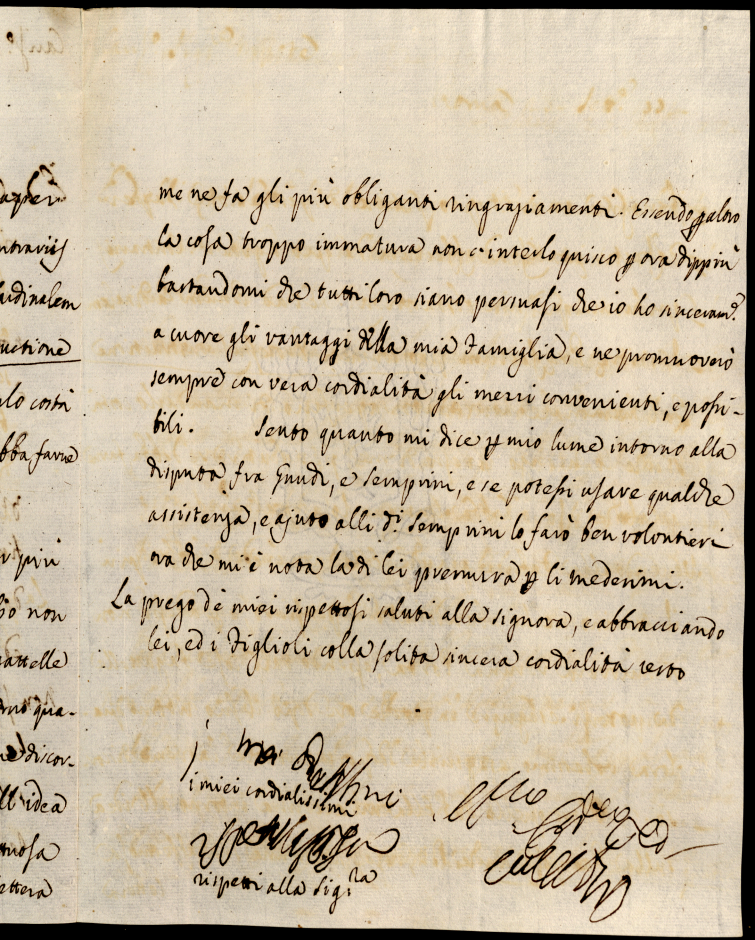 aper
ntravijs
ardinalem
uctione
ulo costà
bba farne
r più
sò non
nattelle
erno qua-
ne discor-
ll'idea
ttuosa
ettera
me ne fa gli più obliganti ringraziamenti. Essendo p altro
la cosa troppo immatura non c'interloquisco p ora dippiù
bastandomi che tutti loro siano persuasi che io ho sinceram.e
a cuore gli vantaggi della mia Famiglia, e ne promuoverò
sempre con vera cordialità gli mezzi convenienti, e possi-
bili. Sento quanto mi dice p mio lume intorno alla
disputa fra Guidi, e Semprini, e se potessi usare qualche
assistenza, e ajuto alli d.i Semprini lo farò ben volontieri
ora che mi è nota la di lei premura p li medesimi.
La prego de miei rispettosi saluti alla signora, e abbracciando
lei, ed i Figlioli colla solita sincera cordialità resto
i miei cordialissimi
rispetti alla Sig.ra